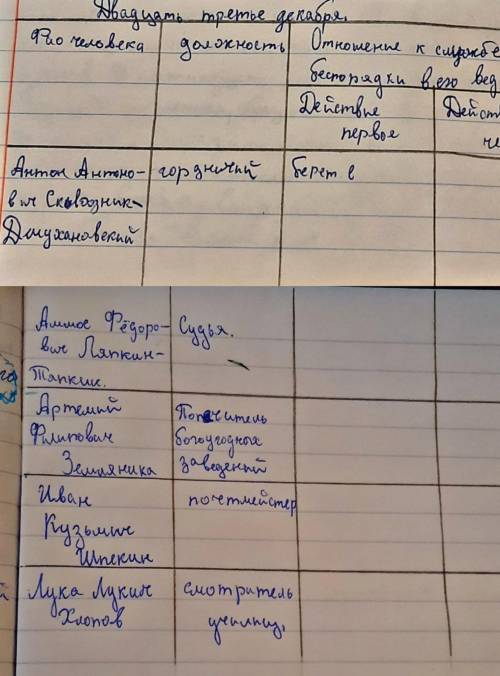 Двадцать третье декабря.
Фио человека
должность
Отношение к службе
беспорядки в его вед
Действие
первое
Дейст
че
Антон Антоно-
вич Сквозник-
Дмухановский
городничий
берет в
Аммос Фёдоро-
вич Ляпкин-
Тяпкин.
Судья.
Артемий
Филипович
Земляника
Попечитель
богоугодных
заведений
Иван
Кузьмич
Шпекин
почтмейстер
Лука Лукич
Хлопов
смотритель
училищ.